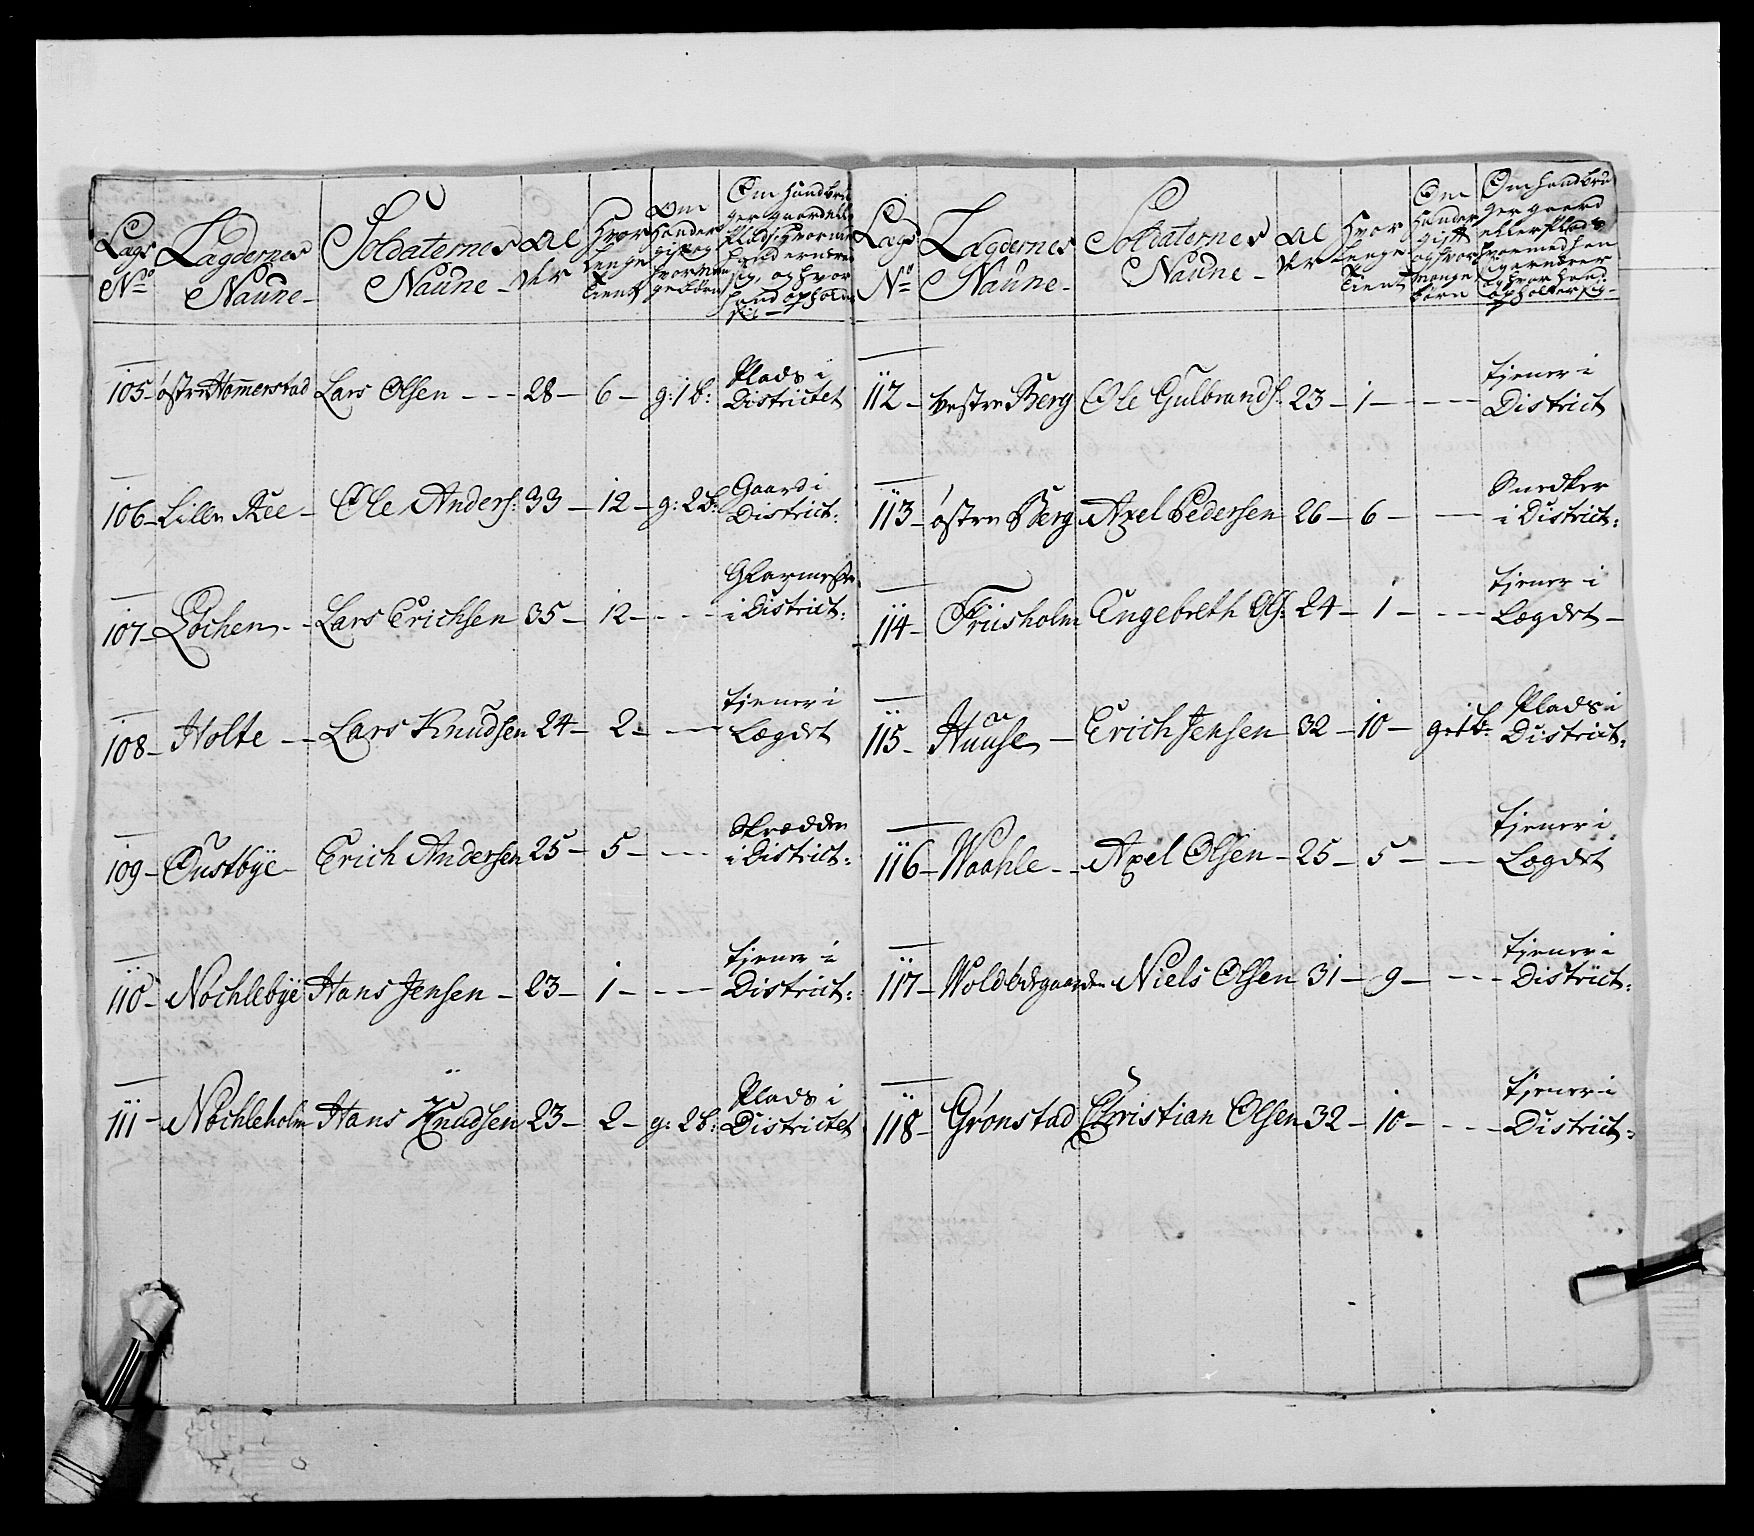 Lægs No
Lægdernes Naune
Soldaternes Naune
Alder
Hvor lenge tient
Om hand er gift og hvor mange børn
Om hand bruger gaard eller Plads, hvormed hand ernærer sig, og hvor hand opholder sig
105 østre Hamerstad Lars Olsen 28 6 g: 1 b: Plads i Districtet
106 Lille Ree Ole Anders: 33 12 g: 2 b: Gaard i District:
107 Lochen Lars Erichsen 35 12 Glarmester i District:
108 Holte Lars Knudsen 24 2 tjener i Lægdet
109 Oustbye Erich Andersen 25 5 Skrædder i District:
110 Nochlebye Hans Jensen 23 1 tjener i District:
111 Nochleholm Hans Knudsen 23 2 g: 2 b: Plads i Districtet
Lægs No
Lægdernes Naune
Soldaternes Naune
Alder
Hvor lenge tient
Om hand er gift og hvor mange børn
Om hand bruger gaard eller Plads hvormed han ernærer og hvor hand opholder sig
112 vestre Berg Ole Gulbrands: 23 1 tjener i District
113 østre Berg Axel Pedersen 26 6 Snedker i District:
114 Friisholm Engebreth Ols: 24 1 tjener i Lægdet
115 Huuse Erich Jensen 32 10 g: 1 b: Plads i District:
116 Waahle Axel Olsen 25 5 tjener i Lægdet
117 Niels Olsen 31 9 tjener i District:
118 Grønstad Christian Olsen 32 10 tjener i District: